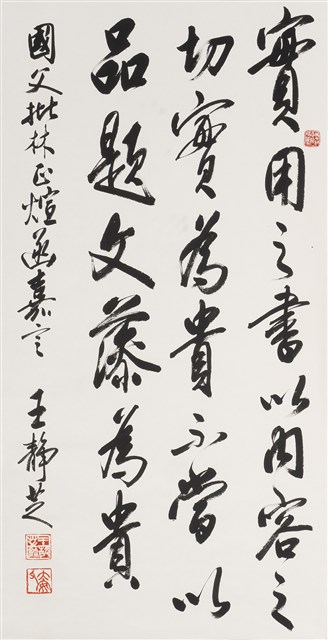 實用之書以內容之
切實為貴不當以
品題文藻為貴
國父批林正煊函嘉言
王靜芝